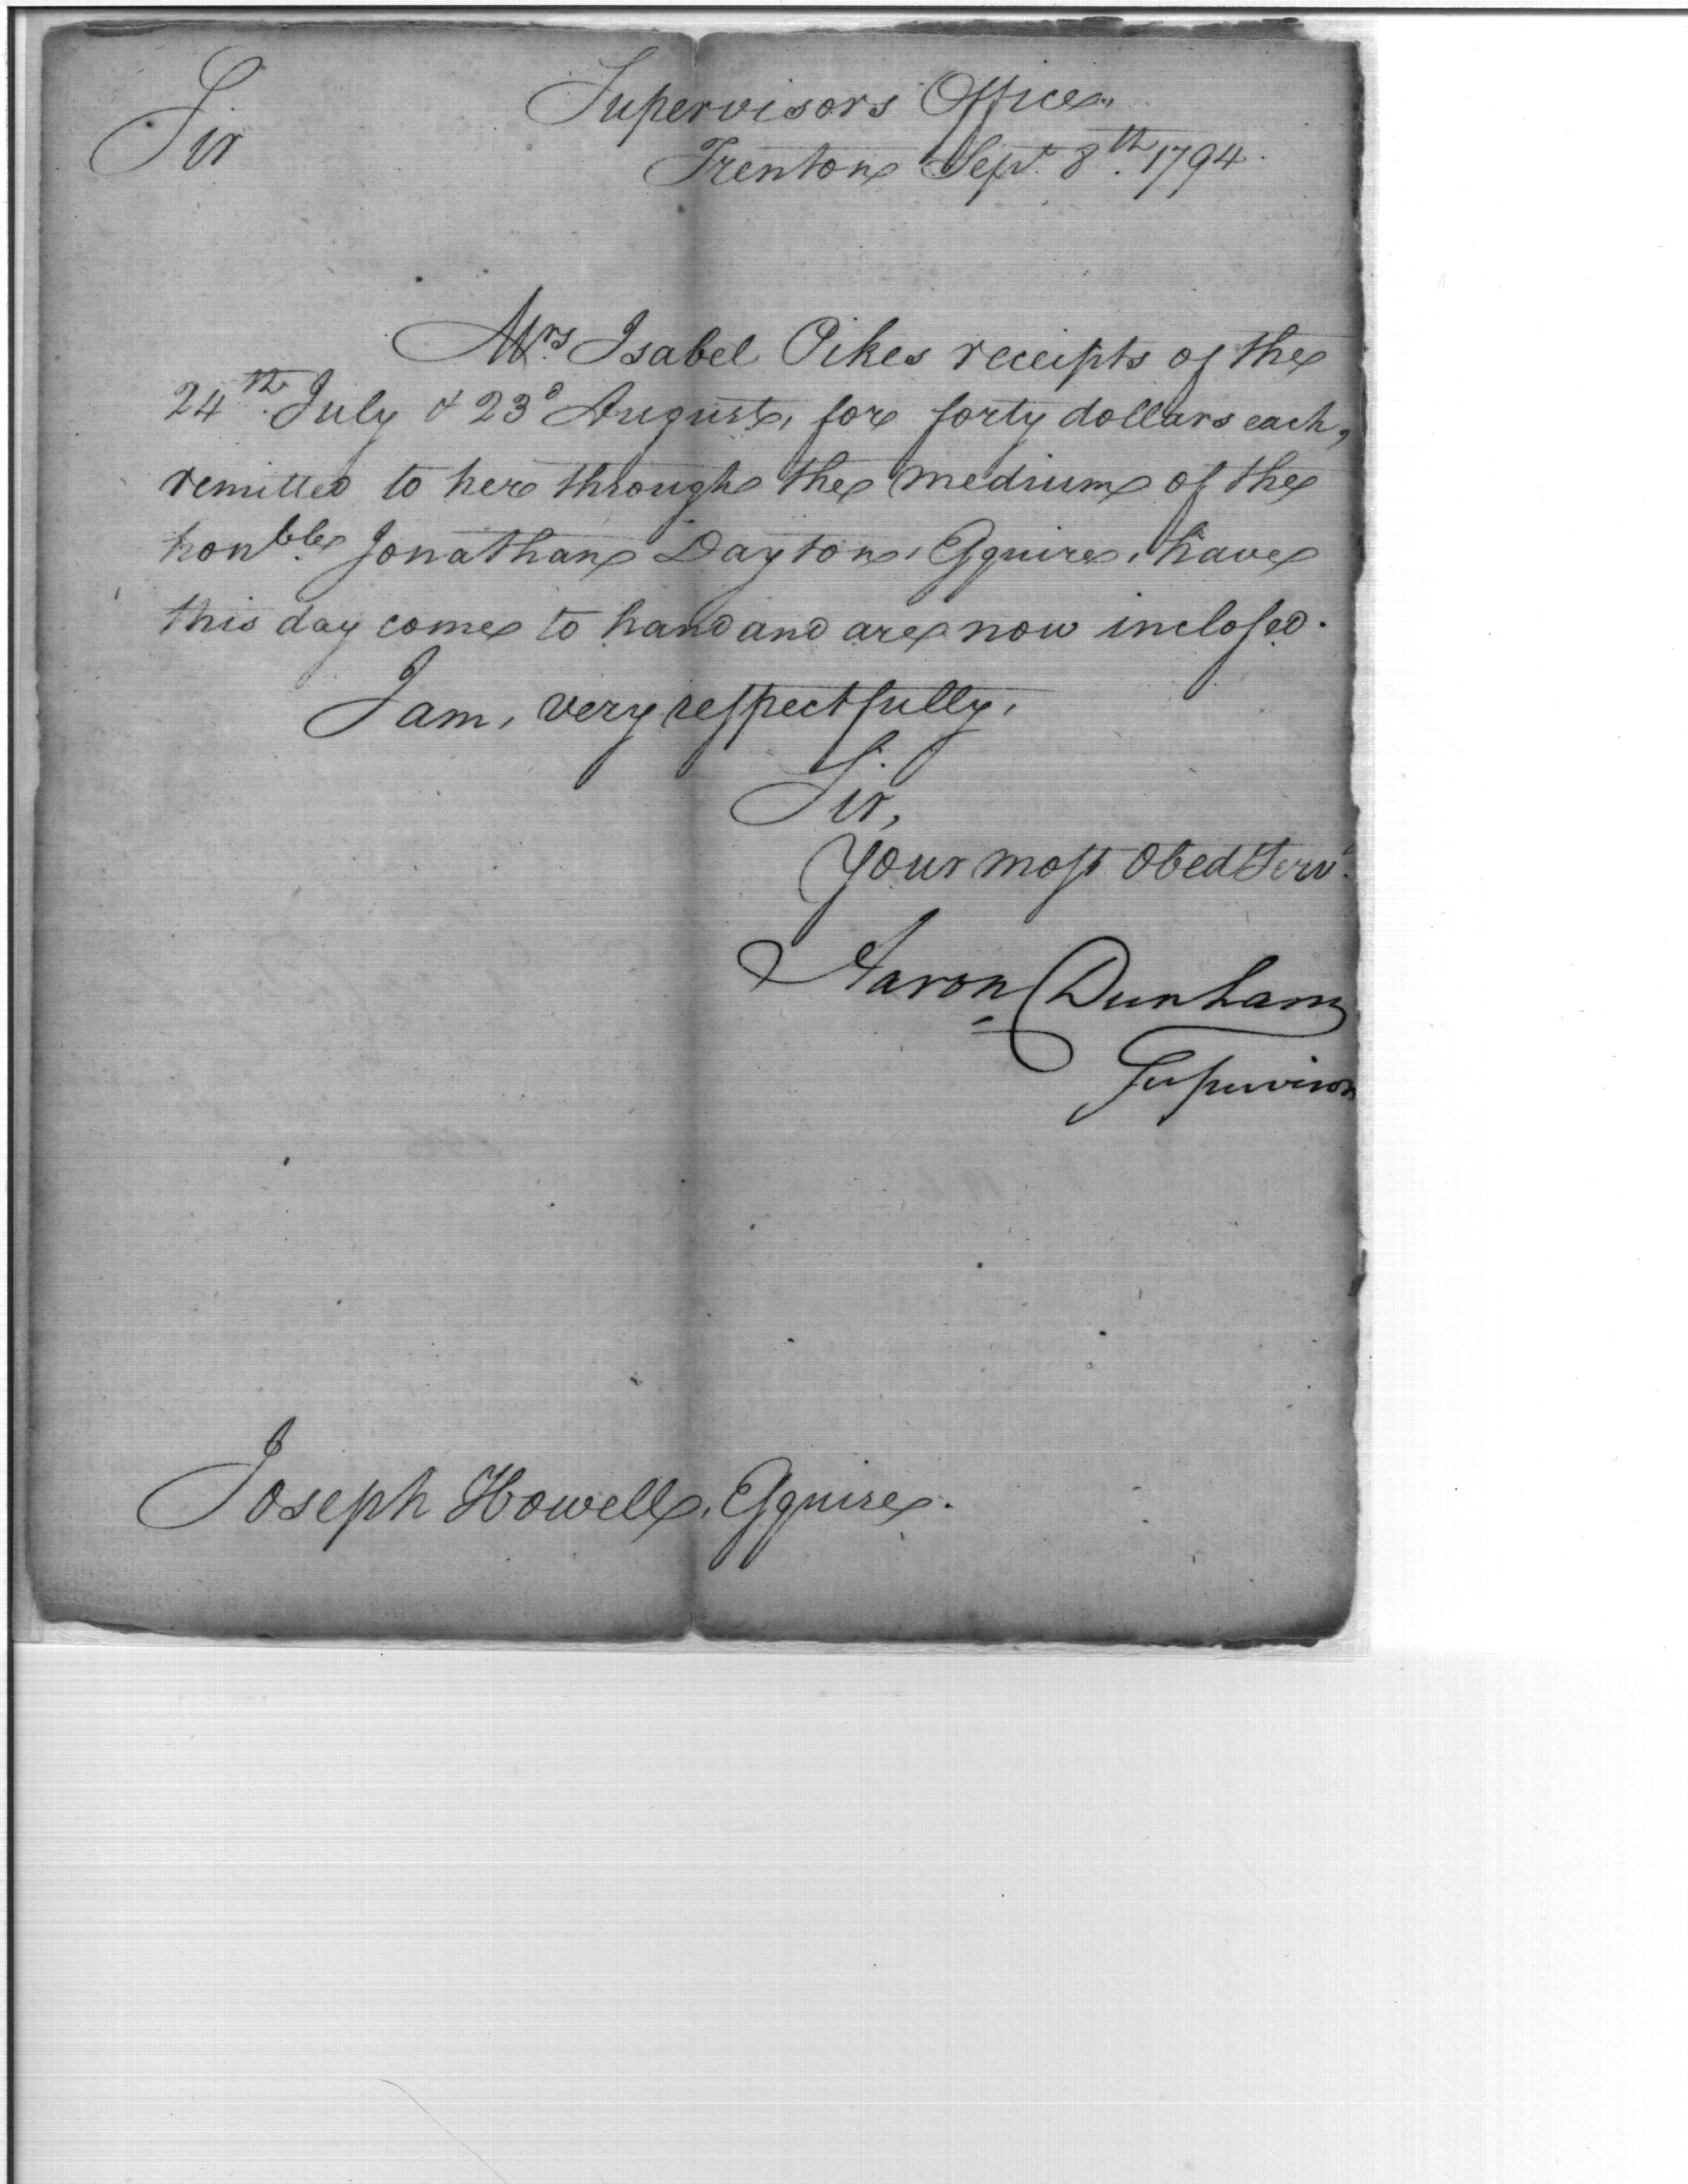 Sir
Supervisors Office,
Trenton Sept. 8th. 1794.
Mrs. Isabel Pikes receipts of the
24th. July & 23d August, for forty dollars each,
remitted to her through the medium of the
honble. Jonathan Dayton, Esquire, have
this day come to hand and are now inclosed.
I am, very respectfully,
Sir,
Your most Obed Servt.
Aaron Dunham
Supervisor
Joseph Howell, Esquire.